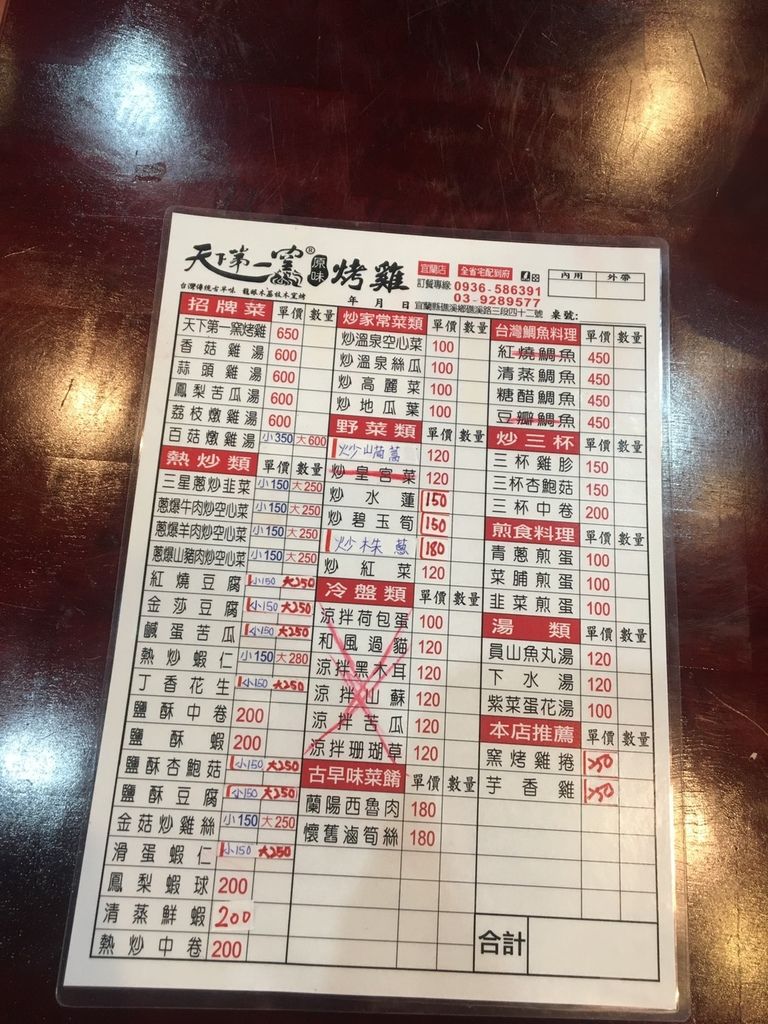 天下第一窯® 原味 烤雞
台灣傳統古早味 龍眼木荔枝木窯烤
宜蘭店 全省宅配到府
訂餐專線 0936-586391
03-9289577
宜蘭縣礁溪鄉礁溪路三段四十二號
內用 外帶
年 月 日 桌號:
招牌菜 單價 數量
天下第一窯烤雞 650
香菇雞湯 600
蒜頭雞湯 600
鳳梨苦瓜湯 600
荔枝燉雞湯 600
百菇燉雞湯 小350 大600
熱炒類 單價 數量
三星蔥炒韭菜 小150 大250
蔥爆牛肉炒空心菜 小150 大250
蔥爆羊肉炒空心菜 小150 大250
蔥爆山豬肉炒空心菜 小150 大250
紅燒豆腐 小150 大250
金莎豆腐 小150 大250
鹹蛋苦瓜 小150 大250
熱炒蝦仁 小150 大280
丁香花生 小150 大250
鹽酥中卷 200
鹽酥蝦 200
鹽酥杏鮑菇 小150 大250
鹽酥豆腐 小150 大250
金菇炒雞絲 小150 大250
滑蛋蝦仁 小150 大250
鳳梨蝦球 200
清蒸鮮蝦 200
熱炒中卷 200
炒家常菜類 單價 數量
炒溫泉空心菜 100
炒溫泉絲瓜 100
炒高麗菜 100
炒地瓜葉 100
野菜類 單價 數量
炒山茼蒿 120
炒皇宮菜 120
炒水蓮 150
炒碧玉筍 150
炒珠蔥 180
炒紅菜 120
冷盤類 單價 數量
涼拌荷包蛋 100
和風過貓 120
涼拌黑木耳 120
涼拌山蘇 120
涼拌苦瓜 120
涼拌珊瑚草 120
古早味菜餚 單價 數量
蘭陽西魯肉 180
懷舊滷筍絲 180
台灣鯛魚料理 單價 數量
紅燒鯛魚 450
清蒸鯛魚 450
糖醋鯛魚 450
豆瓣鯛魚 450
炒三杯 單價 數量
三杯雞胗 150
三杯杏鮑菇 150
三杯中卷 200
煎食料理 單價 數量
青蔥煎蛋 100
菜脯煎蛋 100
韭菜煎蛋 100
湯類 單價 數量
員山魚丸湯 120
下水湯 120
紫菜蛋花湯 100
本店推薦 單價 數量
窯烤雞捲 250
芋香雞 250
合計